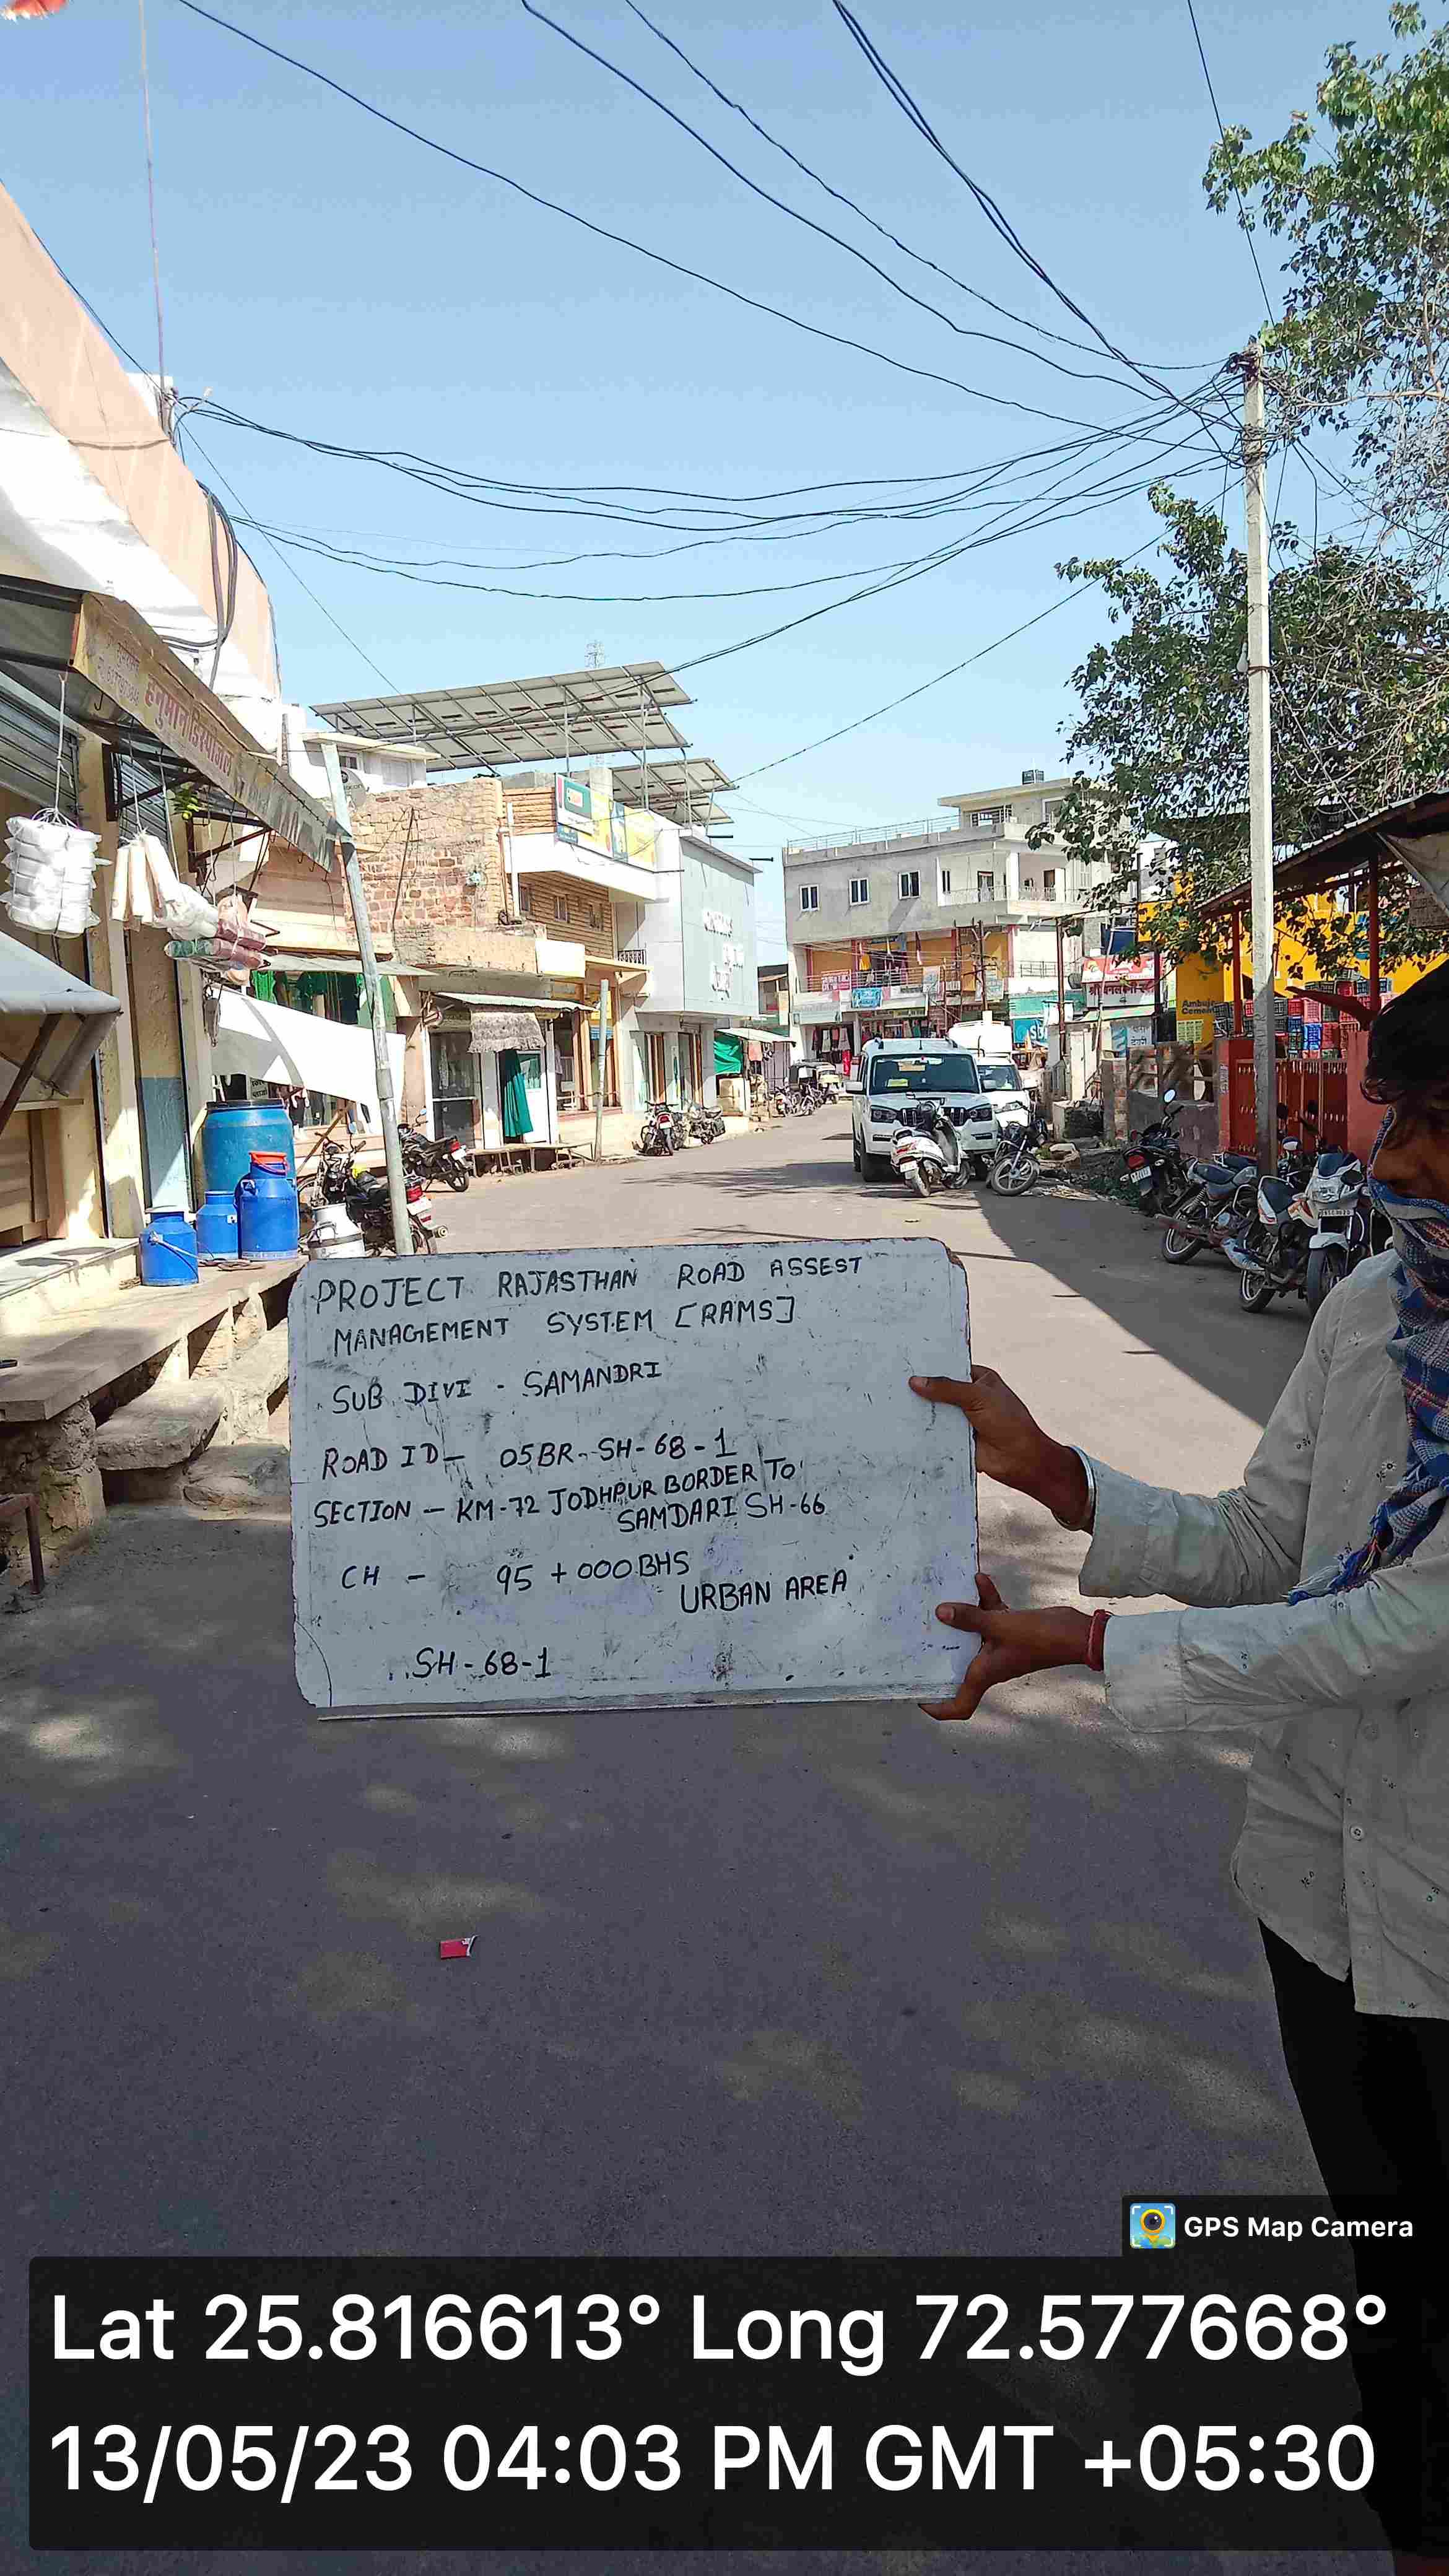 हनुमान डिस्पोजल
Ambuja
Cement
PROJECT RAJASTHAN ROAD ASSEST
MANAGEMENT SYSTEM [RAMS]
SUB DIVI - SAMANDRI
ROAD ID - 05BR-SH-68-1
SECTION - KM-72 JODHPUR BORDER TO
SAMDARI SH-66
CH - 95 +000 BHS
URBAN AREA
SH-68-1
GPS Map Camera
Lat 25.816613° Long 72.577668°
13/05/23 04:03 PM GMT +05:30